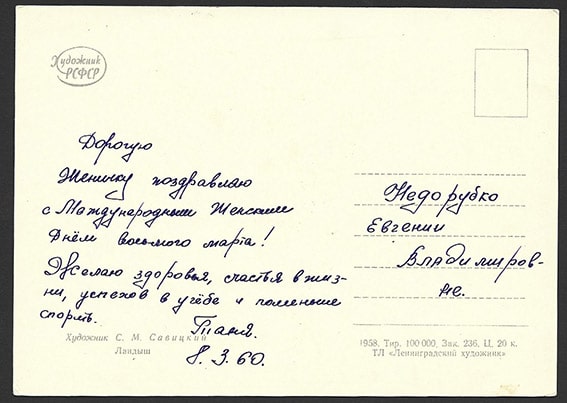 Художник
РСФСР
Дорогую
Женичку поздравляю
с Международным Женским
Днём восьмого марта!
Желаю здоровья, счастья в жиз-
ни, успехов в учёбе и поменьше
спорить.
Таня.
8.3.60.
Художник С. М. Савицкий
Ландыш
Недорубко
Евгении
Владимиров-
не.
1958. Тир. 100·000. Зак. 236. Ц. 20 к.
ТЛ «Ленинградский художник»